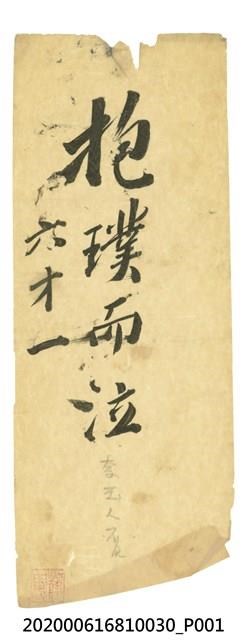 抱璞而泣
六才一
李
202000616810030_P001